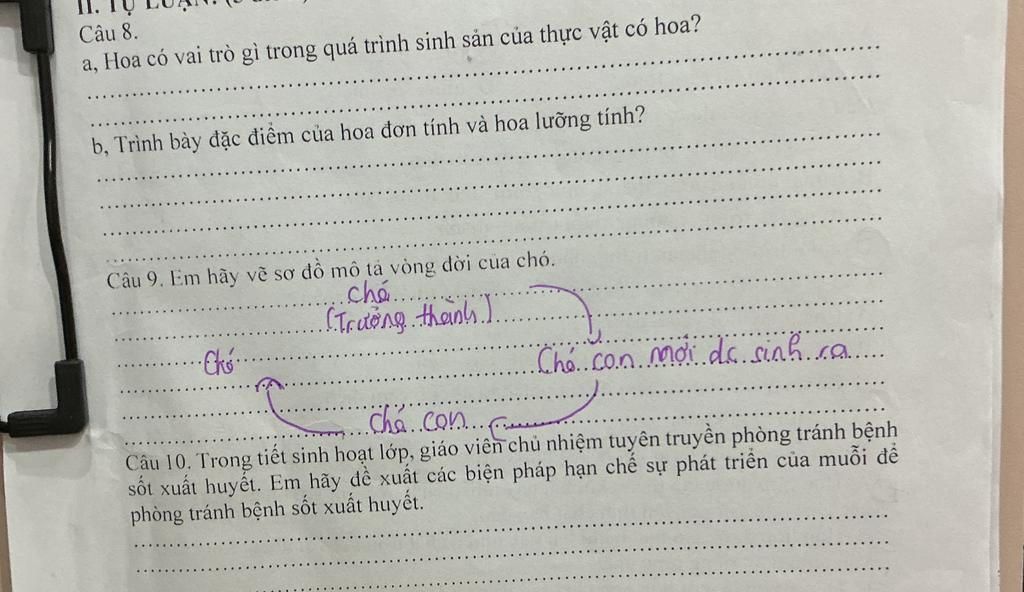 II. TỰ LUẬN.
Câu 8.
a, Hoa có vai trò gì trong quá trình sinh sản của thực vật có hoa?
b, Trình bày đặc điểm của hoa đơn tính và hoa lưỡng tính?
Câu 9. Em hãy vẽ sơ đồ mô tả vòng đời của chó.
Chó
(Trưởng thành)
Chó
Chó con mới dc sinh ra
Chó con
Câu 10. Trong tiết sinh hoạt lớp, giáo viên chủ nhiệm tuyên truyền phòng tránh bệnh
sốt xuất huyết. Em hãy đề xuất các biện pháp hạn chế sự phát triển của muỗi để
phòng tránh bệnh sốt xuất huyết.